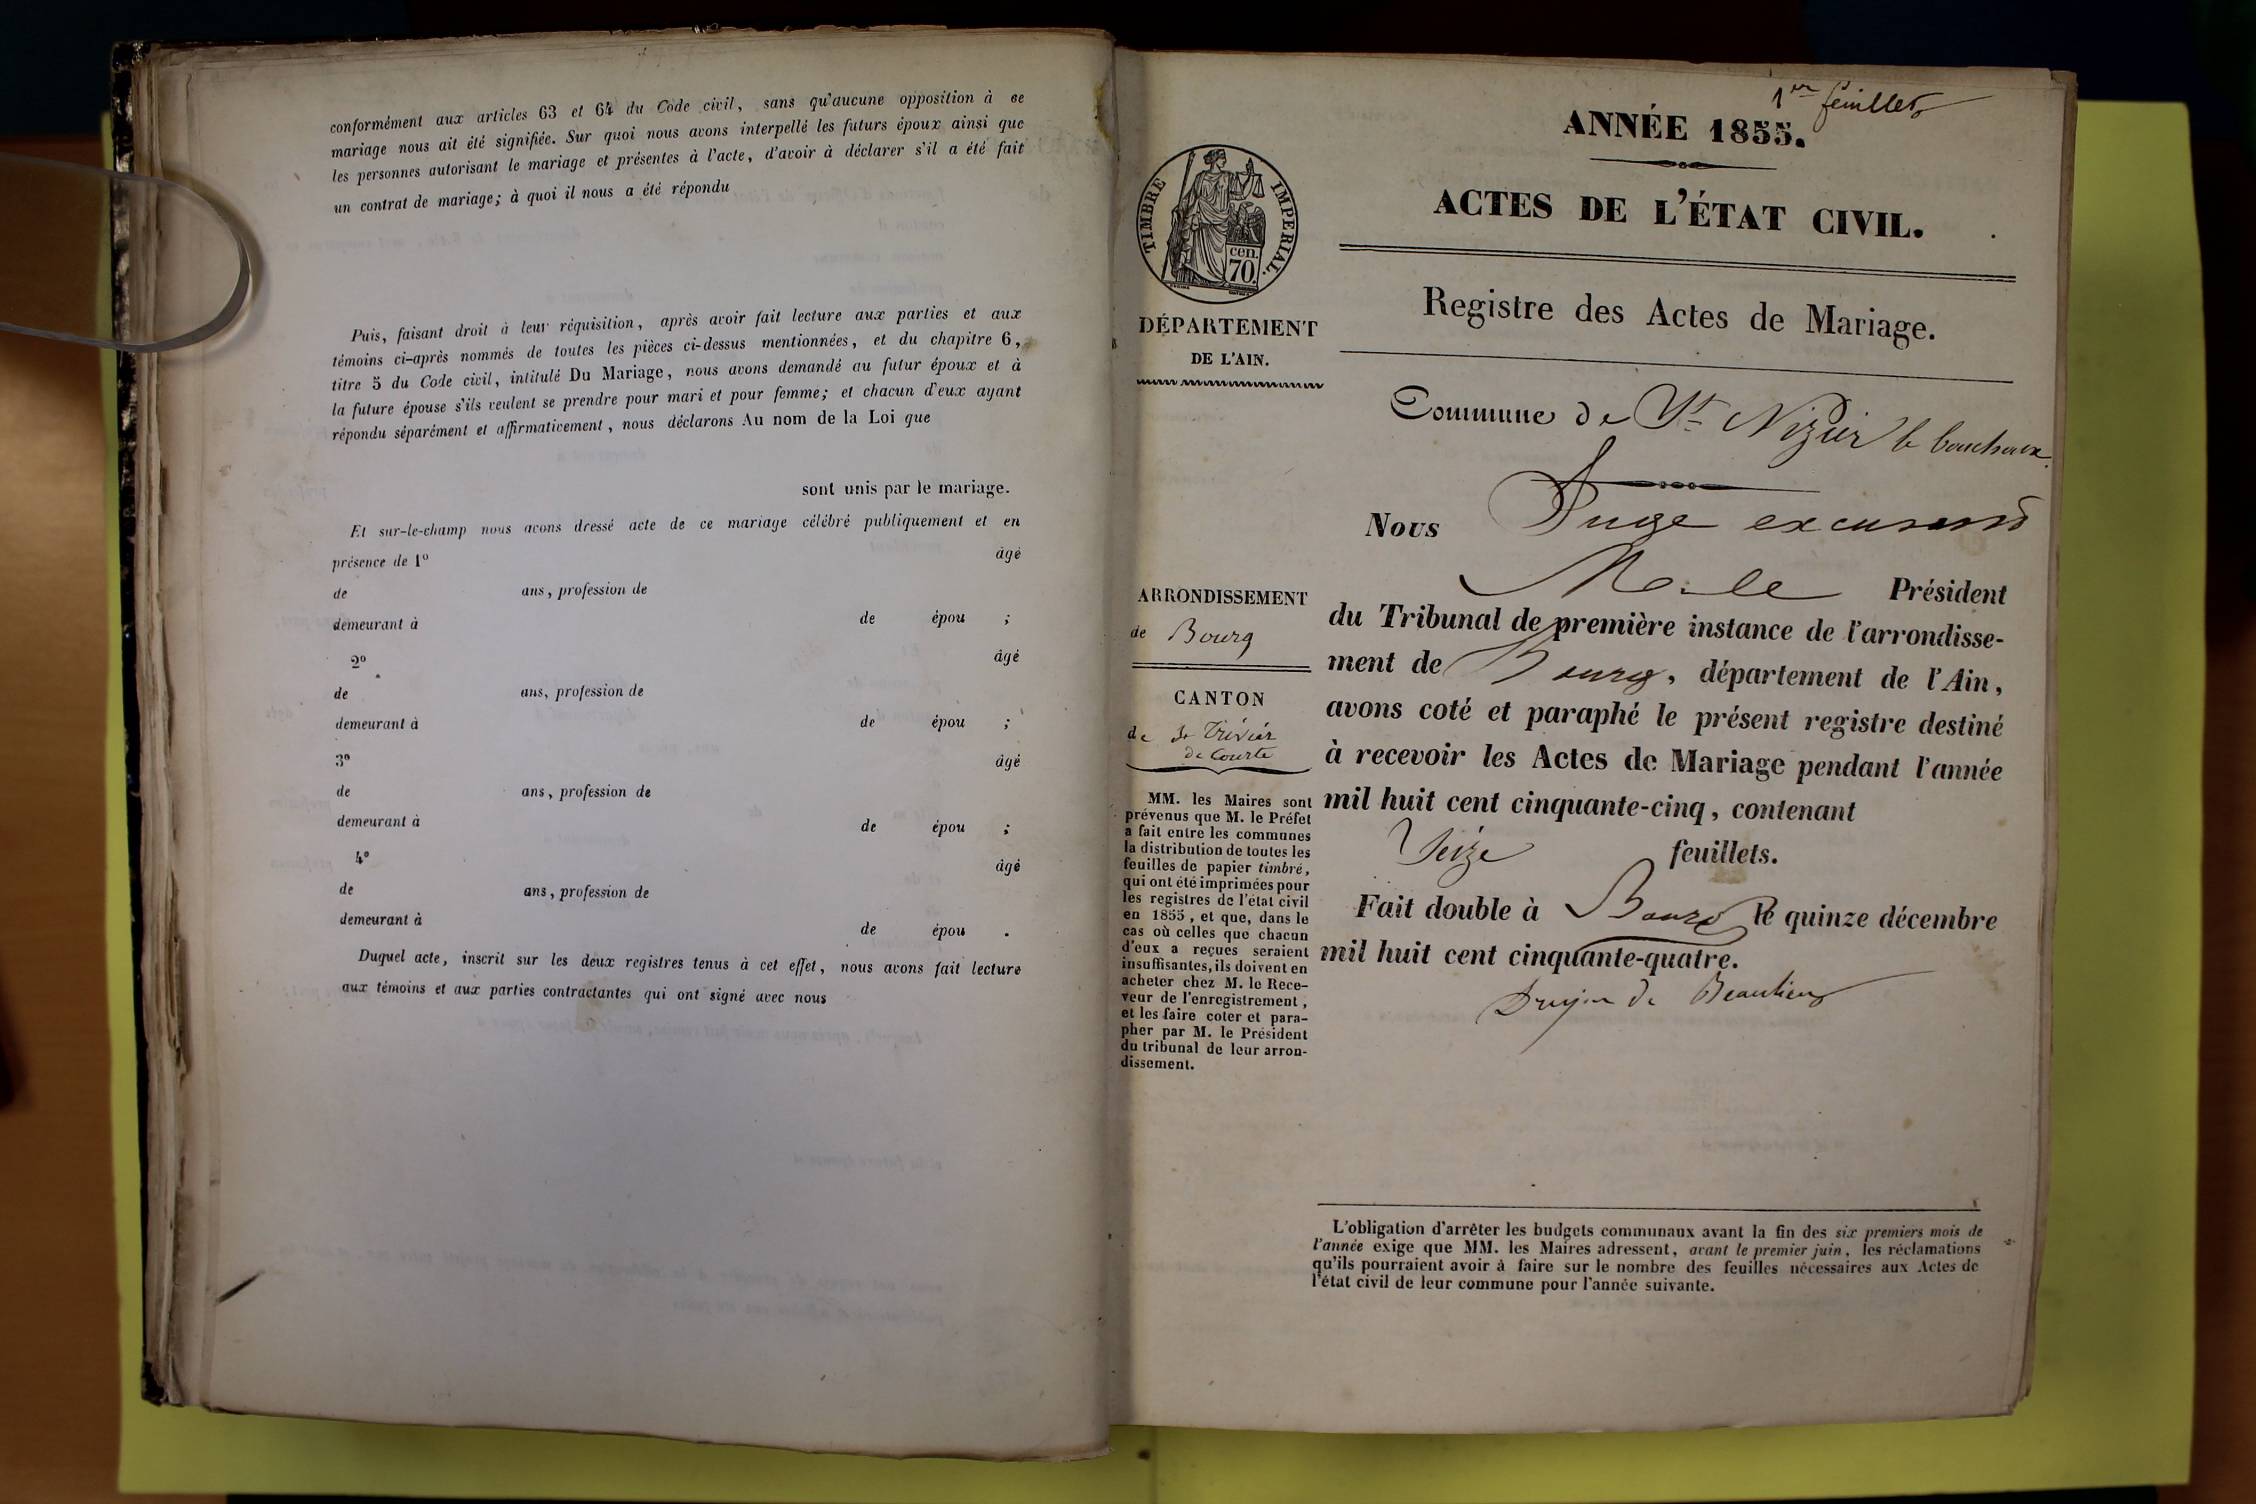 conformément aux articles 63 et 64 du Code civil, sans qu'aucune opposition à ce
mariage nous ait été signifiée. Sur quoi nous avons interpellé les futurs époux ainsi que
les personnes autorisant le mariage et présentes à l'acte, d'avoir à déclarer s'il a été fait
un contrat de mariage; à quoi il nous a été répondu
Puis, faisant droit à leur réquisition, après avoir fait lecture aux parties et aux
témoins ci-après nommés de toutes les pièces ci-dessus mentionnées, et du chapitre 6,
titre 5 du Code civil, intitulé Du Mariage, nous avons demandé au futur époux et à
la future épouse s'ils veulent se prendre pour mari et pour femme; et chacun d'eux ayant
répondu séparément et affirmativement, nous déclarons Au nom de la Loi que
sont unis par le mariage.
Et sur-le-champ nous avons dressé acte de ce mariage célébré publiquement et en
présence de 1º âgé
de ans, profession de
demeurant à de épou ;
2º âgé
de ans, profession de
demeurant à de épou ;
3º âgé
de ans, profession de
demeurant à de épou ;
4º âgé
de ans, profession de
demeurant à de épou .
Duquel acte, inscrit sur les deux registres tenus à cet effet, nous avons fait lecture
aux témoins et aux parties contractantes qui ont signé avec nous
1er feuillet
ANNÉE 1855.
ACTES DE L'ÉTAT CIVIL.
Registre des Actes de Mariage.
TIMBRE IMPERIAL.
cen.
70.
DÉPARTEMENT
DE L'AIN.
ARRONDISSEMENT
de Bourg
CANTON
de St Trivier
de Courte
MM. les Maires sont
prévenus que M. le Préfet
a fait entre les communes
la distribution de toutes les
feuilles de papier timbré,
qui ont été imprimées pour
les registres de l'état civil
en 1855, et que, dans le
cas où celles que chacun
d'eux a reçues seraient
insuffisantes, ils doivent en
acheter chez M. le Rece-
veur de l'enregistrement,
et les faire coter et para-
pher par M. le Président
du tribunal de leur arron-
dissement.
Commune de St Nizier le bouchoux
Nous Juge excusant
M. le Président
du Tribunal de première instance de l'arrondisse-
ment de Bourg, département de l'Ain,
avons coté et paraphé le présent registre destiné
à recevoir les Actes de Mariage pendant l'année
mil huit cent cinquante-cinq, contenant
Seize feuillets.
Fait double à Bourg le quinze décembre
mil huit cent cinquante-quatre.
Drujon de Beaulieu
L'obligation d'arrêter les budgets communaux avant la fin des six premiers mois de
l'année exige que MM. les Maires adressent, avant le premier juin, les réclamations
qu'ils pourraient avoir à faire sur le nombre des feuilles nécessaires aux Actes de
l'état civil de leur commune pour l'année suivante.